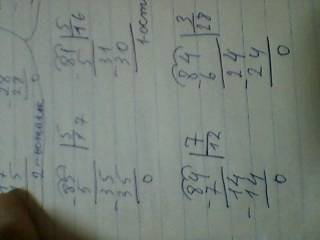 -28
28
0
85 | 5
-5 | 17
35
-35
0
81 | 5
-5 | 16
31
-30
1 ост
84 | 7
-7 | 12
14
-14
0
84 | 3
-6 | 28
24
-24
0